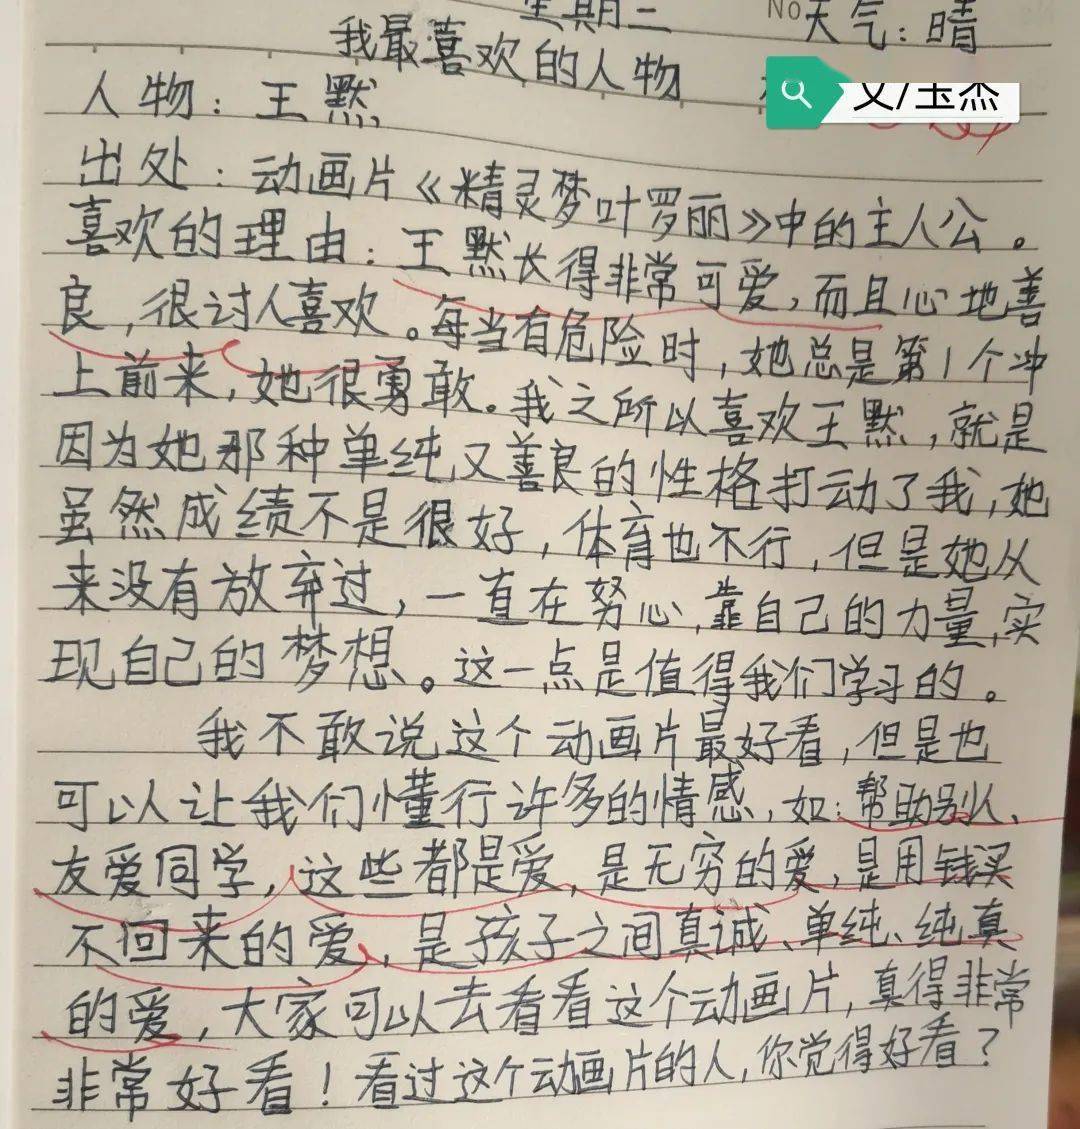 星期二
No 天气：晴
我最喜欢的人物
文/玉杰
人物：王默
出处：动画片《精灵梦叶罗丽》中的主人公。
喜欢的理由：王默长得非常可爱，而且心地善
良，很讨人喜欢。每当有危险时，她总是第1个冲
上前来，她很勇敢。我之所以喜欢王默，就是
因为她那种单纯又善良的性格打动了我，她
虽然成绩不是很好，体育也不行，但是她从
来没有放弃过，一直在努心，靠自己的力量，实
现自己的梦想。这一点是值得我们学习的。
我不敢说这个动画片最好看，但是也
可以让我们懂行许多的情感，如：帮助别人、
友爱同学，这些都是爱，是无穷的爱，是用钱买
不回来的爱，是孩子之间真诚、单纯、纯真
的爱，大家可以去看看这个动画片，真得非常
非常好看！看过这个动画片的人，你觉得好看？